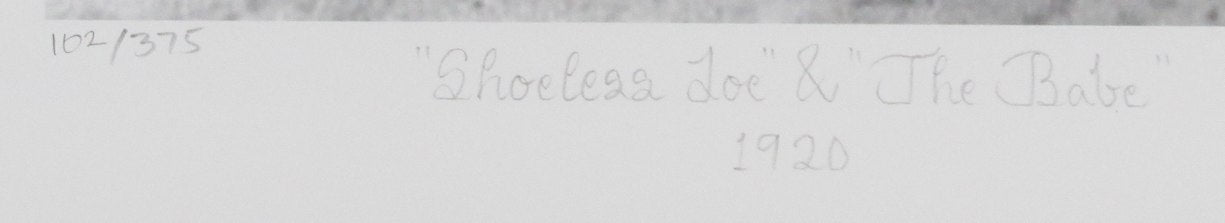 102/375
"Shoeless Joe" & "The Babe"
1920